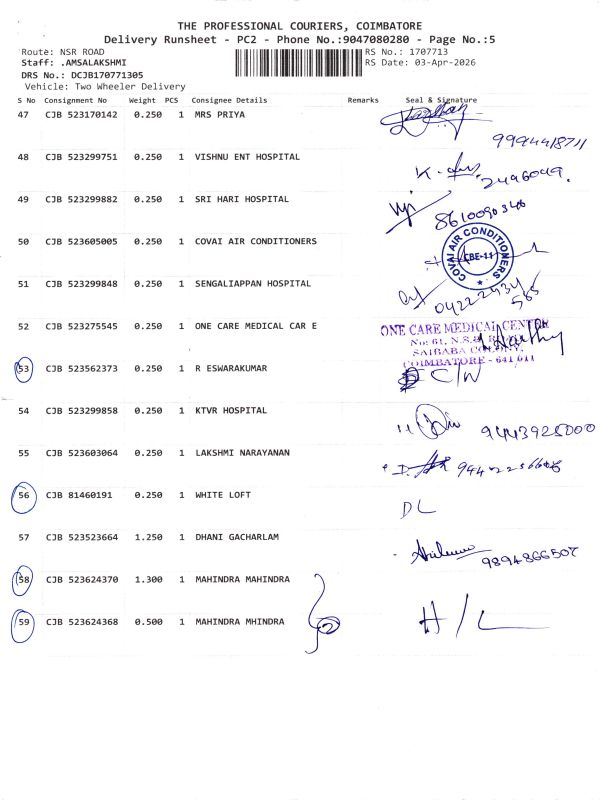 THE PROFESSIONAL COURIERS, COIMBATORE
Delivery Runsheet - PC2 - Phone No.:9047080280 - Page No.:5
Route: NSR ROAD RS No.: 1707713
Staff: .AMSALAKSHMI RS Date: 03-Apr-2026
DRS No.: DCJB170771305
Vehicle: Two Wheeler Delivery
S No Consignment No Weight PCS Consignee Details Remarks Seal & Signature
47 CJB 523170142 0.250 1 MRS PRIYA
9994418711
48 CJB 523299751 0.250 1 VISHNU ENT HOSPITAL
2496049.
49 CJB 523299882 0.250 1 SRI HARI HOSPITAL
8610090346
50 CJB 523605005 0.250 1 COVAI AIR CONDITIONERS
COVAI AIR CONDITIONERS
CBE-11
51 CJB 523299848 0.250 1 SENGALIAPPAN HOSPITAL
04222434
565
52 CJB 523275545 0.250 1 ONE CARE MEDICAL CAR E
ONE CARE MEDICAL CENTRE
No: 61, N.S.R.
SAIBABA COLONY,
COIMBATORE - 641 011
53 CJB 523562373 0.250 1 R ESWARAKUMAR
54 CJB 523299858 0.250 1 KTVR HOSPITAL
9443925000
55 CJB 523603064 0.250 1 LAKSHMI NARAYANAN
56 CJB 81460191 0.250 1 WHITE LOFT
DL
57 CJB 523523664 1.250 1 DHANI GACHARLAM
9894866507
58 CJB 523624370 1.300 1 MAHINDRA MAHINDRA
59 CJB 523624368 0.500 1 MAHINDRA MHINDRA
H/L